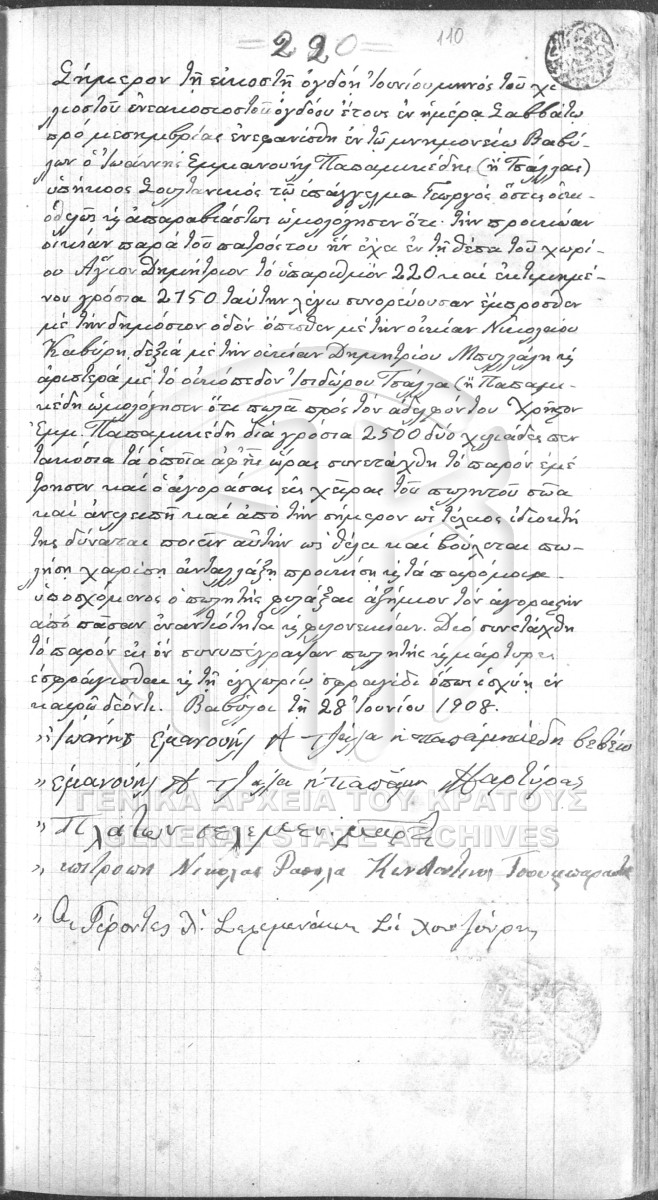 =220= 110
Σήμερον τῇ εἰκοστῇ ὀγδόῃ Ἰουνίου μηνός τοῦ χι-
λιοστοῦ ἐνεακοσιοστοῦ ὀγδόου ἔτους ἐν ἡμέρᾳ Σαββάτῳ
πρό μεσημβρίας ἐνεφανίσθη ἐν τῷ μνημονείῳ Βαβύ-
λων ὁ Ἰωάννης Ἐμμανουήλ Παπαμικέδης (ἤ Τσάλλας)
ὑπήκοος Σουλτανικός τῷ ἐπάγγελμα Γεωργός ὅστις οἰκι-
οθελῶς κ απαραβιάστως ὡμολόγησεν ὅτι τήν προικῴαν
οἰκίαν παρά τοῦ πατρός του ἥν ἔχει ἐν τῇ θέσει τοῦ χωρί-
ου Ἅγιον Δημήτριον τό ὑπαριθμόν 220 καί ἐκτιμημέ-
νου γρόσια 2750 ταύτην λέγω συνορεύουσαν ἔμπροσθεν
μέ την δημόσιον οδόν ὄπισθεν μέ τήν οἰκίαν Νικολαίου
Καβύρη, δεξιά μέ τήν οἰκίαν Δημητρίου Μπιλλάλη κ
ἀριστερά μέ τό οἰκόπεδον Ἰσιδώρου Τσάλλα (ἤ Παπαμι-
κέδη ὡμολόγησεν ὅτι πωλεῖ πρός τόν ἀδελφόν του Χρῆστον
Ἐμμ. Παπαμικέδη διά γρόσια 2500 δύο χιλιάδες πεν
τακόσια τά ὁποῖα ἀφ' ἧς ὥρας συνετάχθη τό παρόν ἐμέ
τρησεν καί ὁ ἀγοράσας εἰς χεῖρας τοῦ πωλητοῦ σῶα
καί ἀνελειπῆ καί ἀπό τήν σήμερον ὡς τέλειος ἰδιοκτή
της δύναται ποιεῖν αὐτήν ὡς θέλει καί βούλεται πω-
λήσῃ χαρίσῃ ἀνταλλάξῃ προικίσῃ κ τά παρόμοια.
ὑποσχόμενος ὁ πωλητής φυλάξαι ἀζήμιον τόν ἀγοραστήν
ἀπό πᾶσαν ἐναντιότητα κ φιλονεικίαν. Διό συνετάχθη
τό παρόν εἰς ὅν συνυπέγραψαν πωλητής κ μάρτυρες
ἐσφράγισθαι κ τῇ ἐγχωρίῳ σφραγίδι ὅπως ἰσχύῃ ἐν
καιρῷ δέοντι. Βαβύλοι τῇ 28 Ἰουνίου 1908.
" Ἰωάννης Ἐμανουήλ τζάλα ἤ παπαμικέδη βεβεῶ
" Ἐμανουήλ τζαλα ἤ παπαμι Μαρτύρας
" Πλάτων σελεμεν. μαρτ
" Νικολας Κωνσταντινος
" Οι Γέροντες Λ. Σελεμενάκης
ΓΕΝΙΚΑ ΑΡΧΕΙΑ ΤΟΥ ΚΡΑΤΟΥΣ
GENERAL STATE ARCHIVES